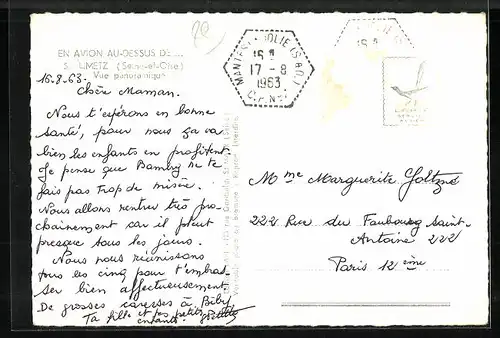 EN AVION AU-DESSUS DE ...
METZ (Seine-et-Oise)
Vue panoramique
16.8.63.
Chère Maman.
Nous t'espérons en bonne
santé, pour nous ça va
bien les enfants en profitent.
Je pense que ne te
fais pas trop de misère.
Nous allons rentrer très pro-
chainement car il pleut
presque tous les jours.
Nous nous réunissons
tous les cinq pour t'embras-
ser bien affectueusement.
De grosses caresses à Biby
Ta fille et ses petits
enfants.
MANTES JOLIE (S & O.)
17 - 8
1963
Mme Marguerite
222 Rue du Faubourg Saint-
Antoine 222
Paris 12ème